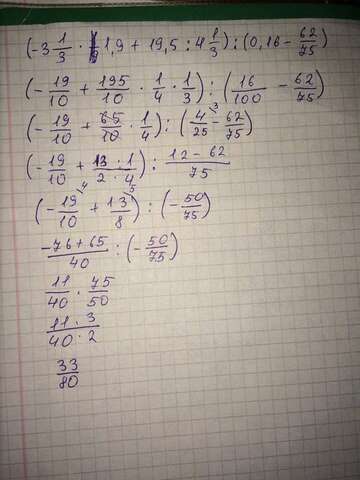 (-3 1/3 · 1,9 + 19,5 : 4 1/3) : (0,16 - 62/75)
(-19/10 + 195/10 · 1/4 · 1/3) : (16/100 - 62/75)
(-19/10 + 65/10 · 1/4) : (4/25 ³ - 62/75)
(-19/10 + 13 · 1/2 · 4) : 12 - 62/75
(-19/10 ⁴ + 13/8 ⁵) : (-50/75)
-76 + 65/40 : (-50/75)
11/40 · 75/50
11 · 3/40 · 2
33/80